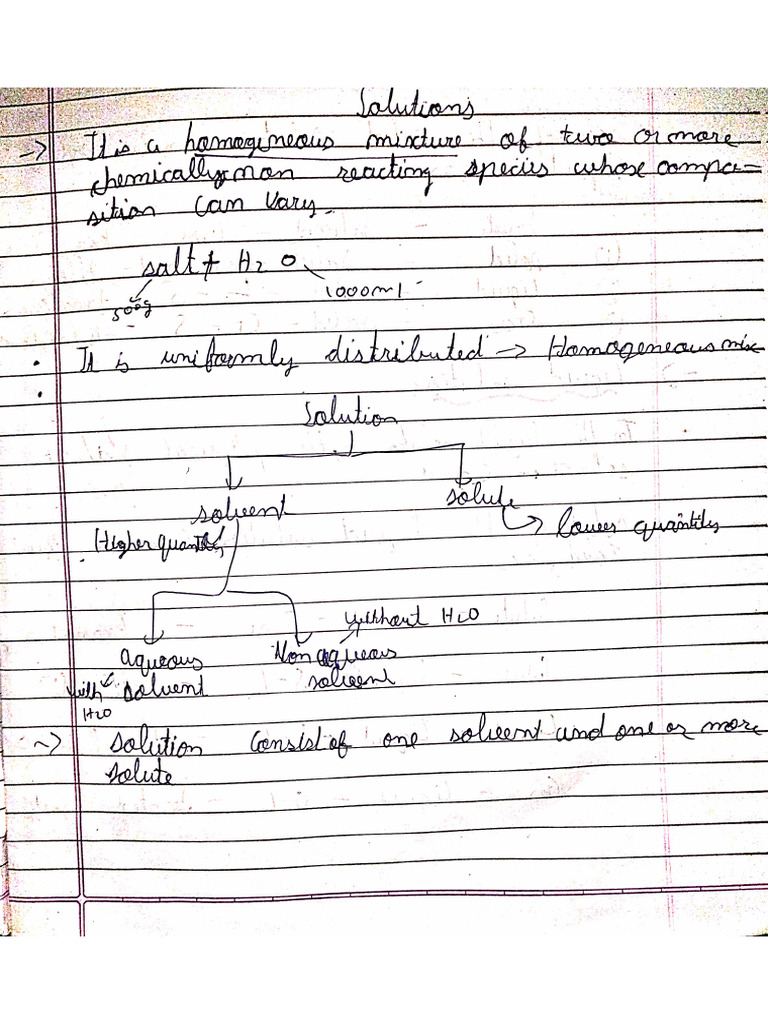 Solutions
→ It is a homogineous mixture of two or more
chemically non reacting species whose compo=
sition can vary.
salt + H2O
500g
1000ml
• It is uniformly distributed → Homogeneous mix
•
Solution
solvent
solute
Higher quantity
lower quantity
without H2O
aqueous
Non aqueous
with solvent
solvent
H2O
~> solution consist of one solvent and one or more
solute